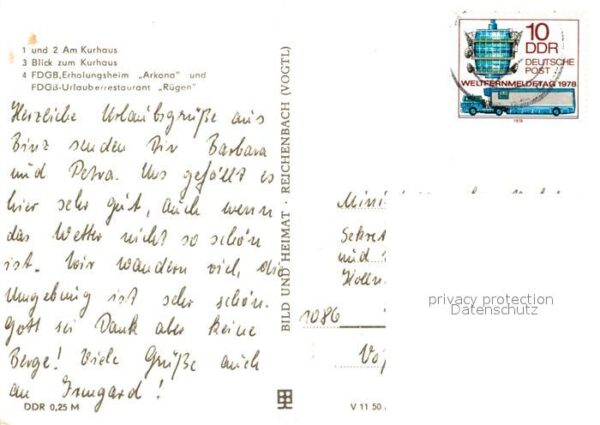 1 und 2 Am Kurhaus
3 Blick zum Kurhaus
4 FDGB,Erholungsheim „Arkona" und
FDGB-Urlauberrestaurant „Rügen"
Herzliche Urlaubsgrüße aus
Binz senden Dir Barbara
und Petra. Uns gefällt es
hier sehr gut, auch wenn
das Wetter nicht so schön
ist. Wir wandern viel, die
Umgebung ist sehr schön.
Gott sei Dank aber keine
Berge! Viele Grüße auch
an Irmgard!
DDR 0,25 M
BILD UND HEIMAT · REICHENBACH (VOGTL)
V 11 50
10
DDR
DEUTSCHE
POST
WELTFERNMELDETAG 1978
1978
Sekret
und
1086
privacy protection
Datenschutz